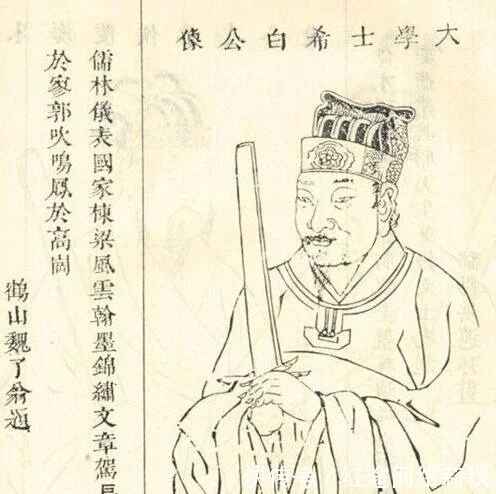 大學士希白公像
儒林儀表國家棟梁風雲翰墨錦繡文章駕長
於寥郭吹鳴鳳於高岡
鶴山魏了翁題